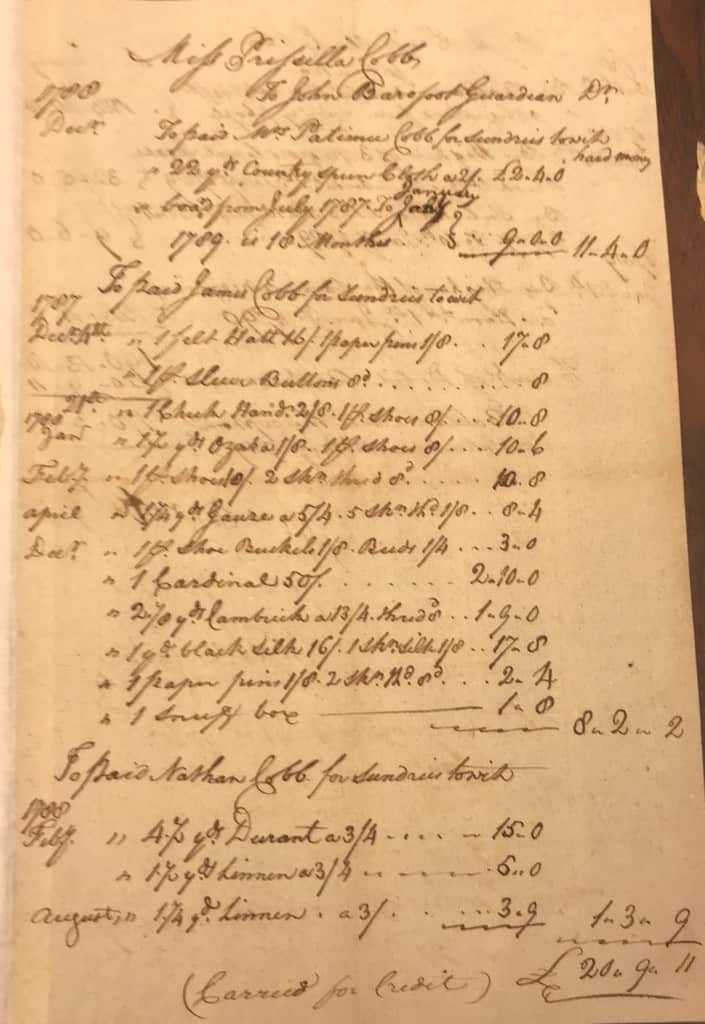 Miss Prissilla Cobb
1788 To John Barefoot Guardian Dr
Decr To paid Mrs Patience Cobb for Sundries towit
hard money
" 22 yds Country spun Cloth a 2/. £2-4-0
January
" board from July 1787 To
1789 is 18 Months .. 9-0-0 11-4-0
To paid James Cobb for Sundries towit
1787
Decr " 1 felt Hatt 16/ 1 paper pins 1/8 .. 17-8
" 1 pr Sleeve Buttons 8d ...... 8
21st " 1 Check Handr 2/8. 1 pr Shoes 8/ ... 10-8
1788
Jan " 1½ yds Oznabs 1/8. 1 pr Shoes 8/ ... 10-6
Feby " 1 pr Shoes 10/. 2 Skns thred 8d .... 10-8
april " 1/4 yds Gauze a 5/4. 5 Skns thd 1/8 .. 8-4
Decr " 1 pr Shoe Buckels 1/8. Buds 1/4 ... 3-0
" 1 Cardinal 50/. ...... 2-10-0
" 2 1/8 yds Cambrick a 13/4. thred 8d .. 1-9-0
" 1 yd black Silk 16/. 1 Skn Silk 1/8 .. 17-8
" 1 paper pins 1/8. 2 Skns thd 8d ... 2-4
" 1 Snuff box 1-8
8-2-2
To paid Nathan Cobb for Sundries towit
1788
Feby " 4½ yds Durant a 3/4 .... 15-0
" 1½ yds Linnen a 3/4 .... 5-0
August, " 1 1/4 yd Linnen . a 3/. .... 3-9 1-3-9
£20-9-11
(Carried for Credit)